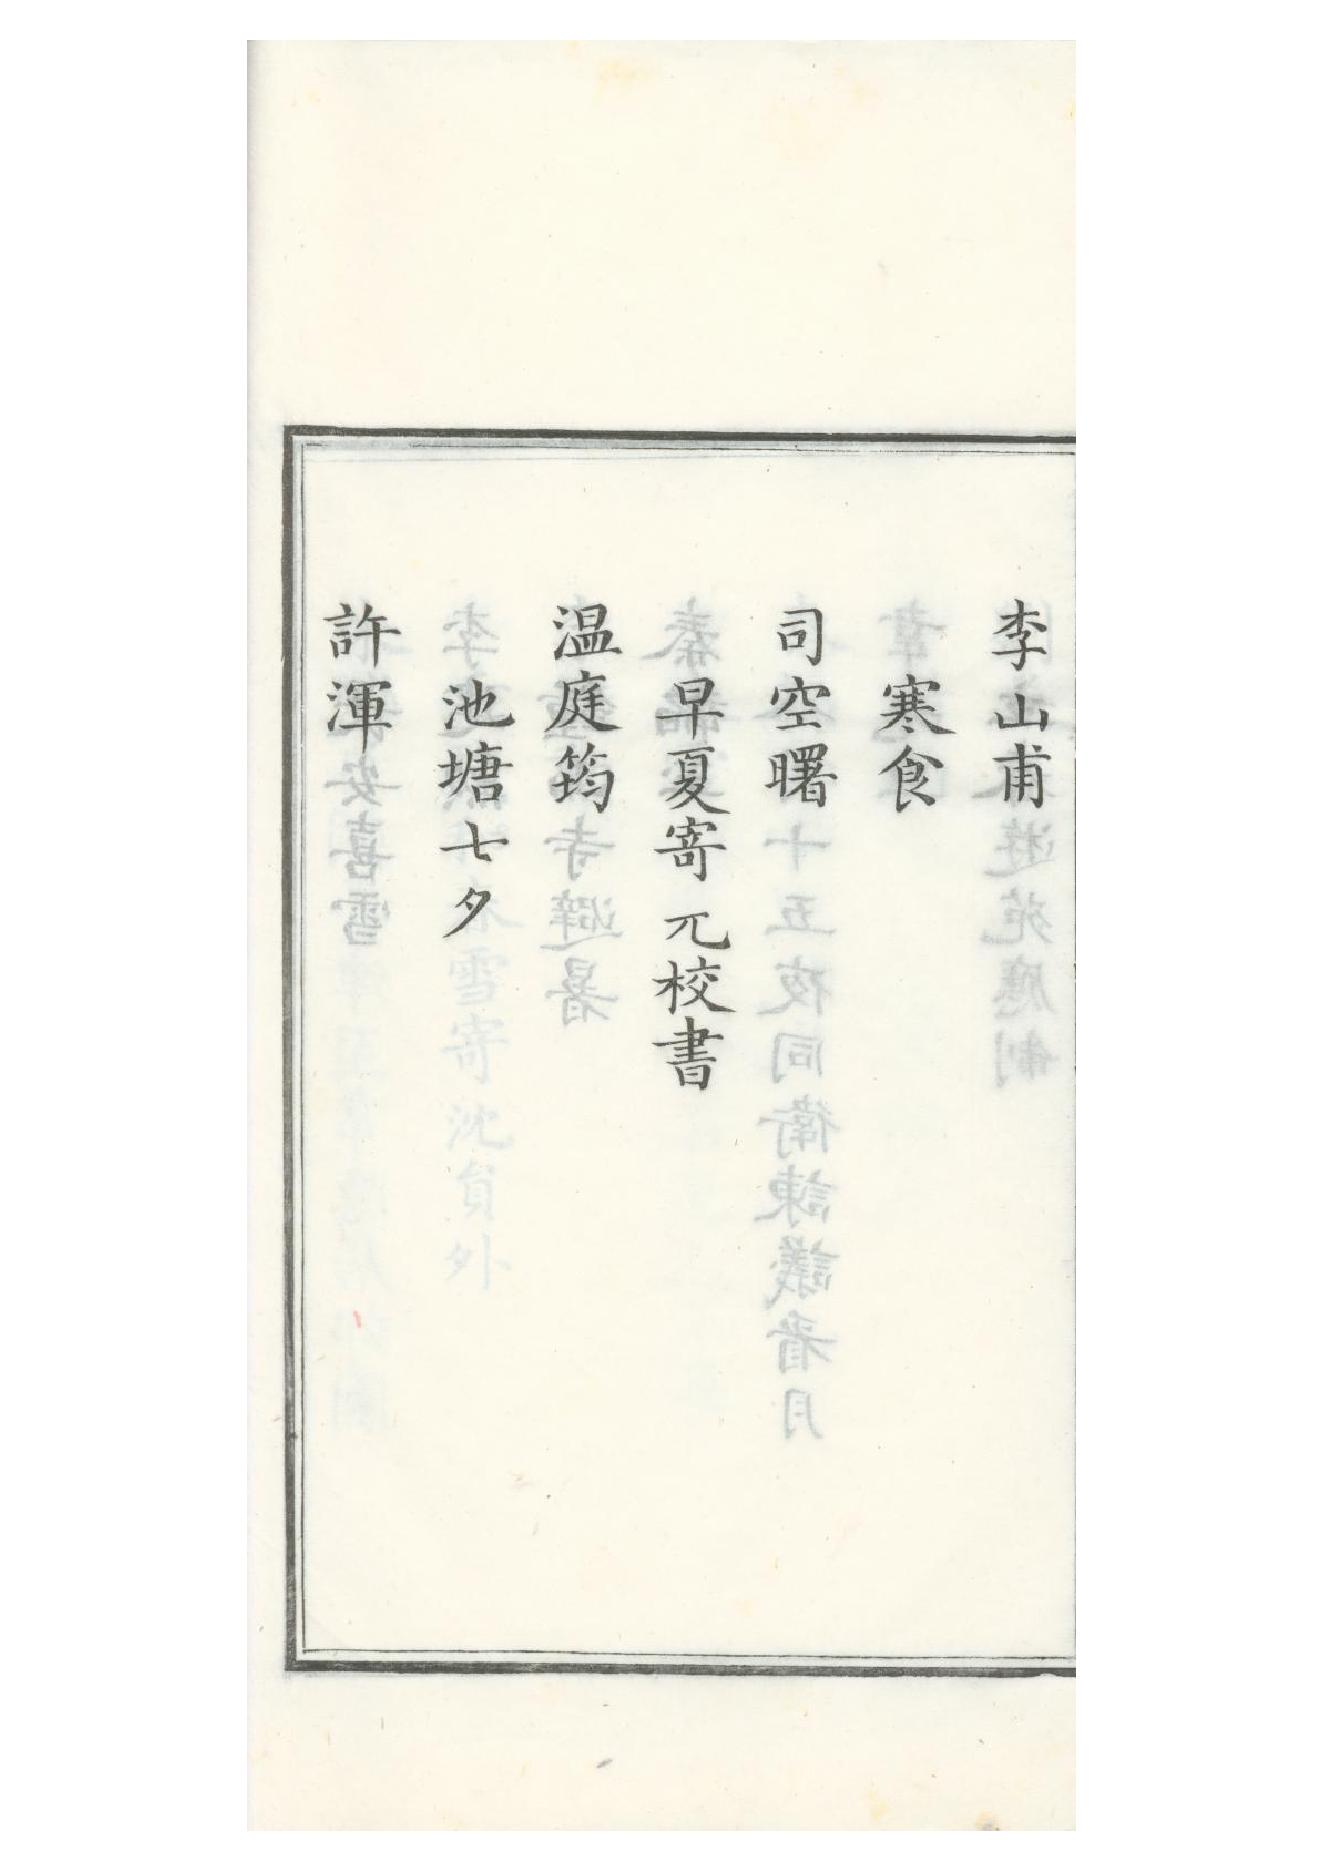 李山甫
寒食
司空曙
早夏寄元校書
温庭筠
池塘七夕
許渾